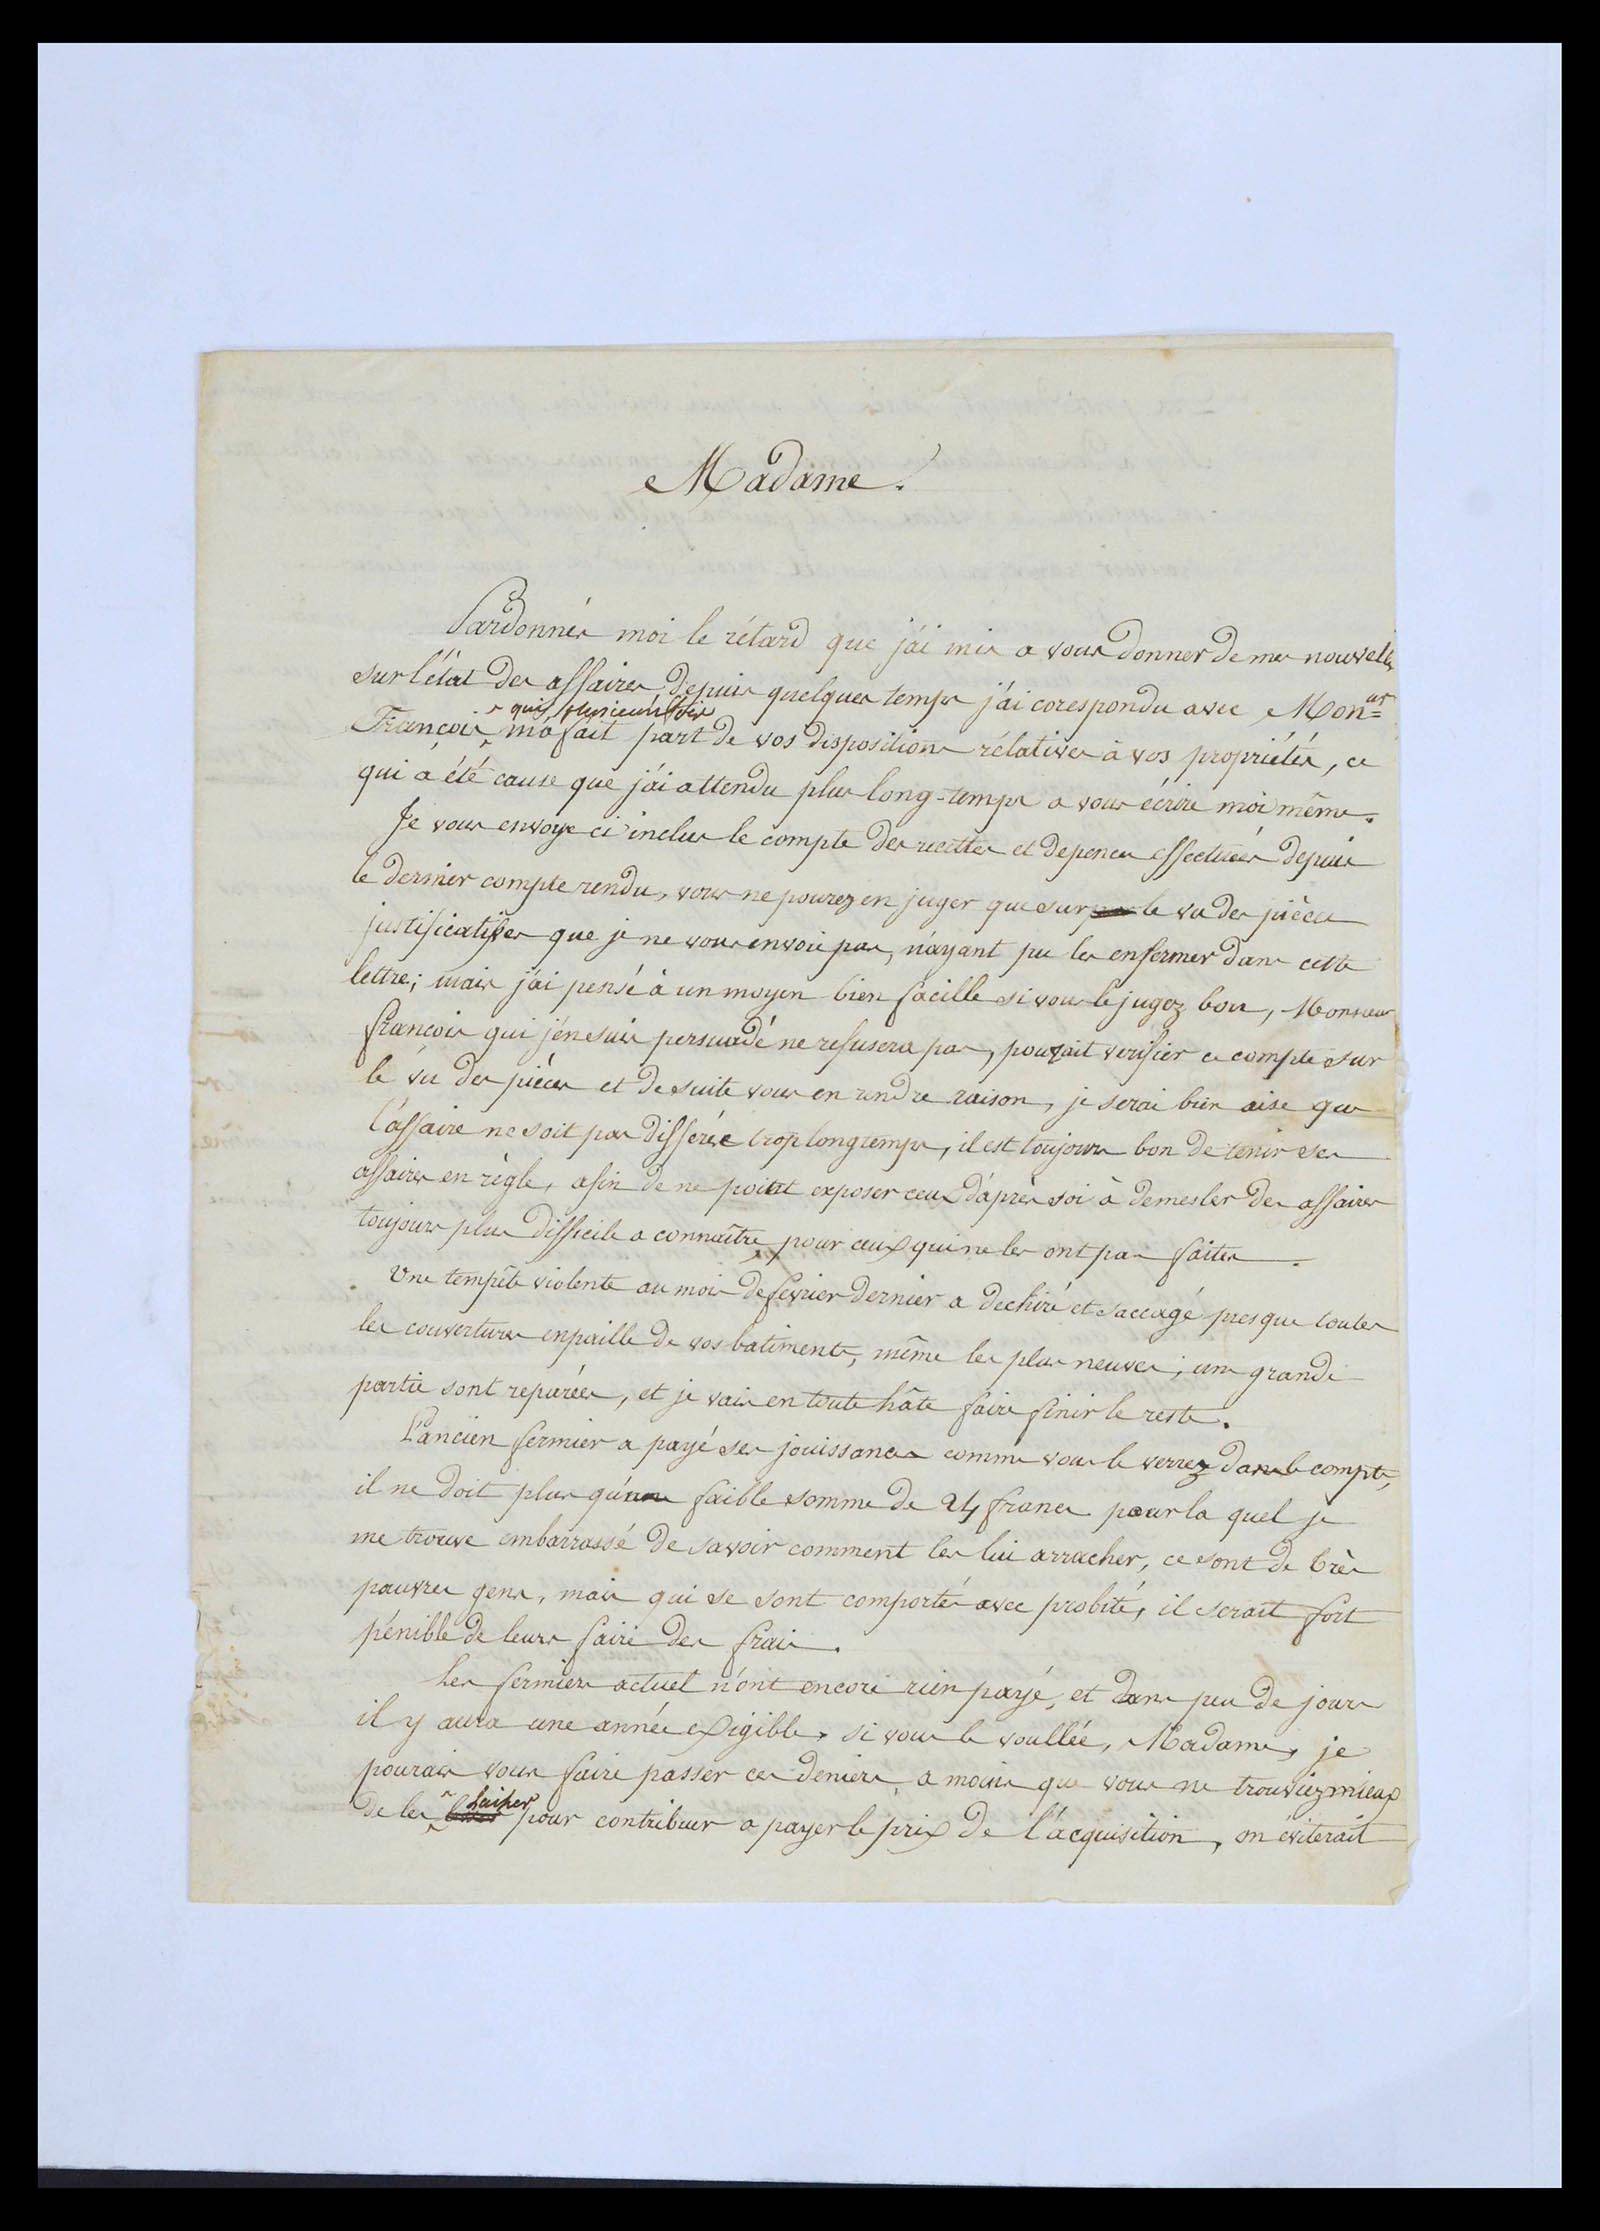 Madame.
Pardonnés moi le rétard que j'ai mis a vous donner de mes nouvelles
sur l'état des affaires, depuis quelques temps j'ai corespondu avec Mon=ur
qui plusieurs fois
François m'a fait part de vos dispositions rélatives à vos propriétés, ce
qui a été cause que j'ai attendu plus long-temps a vous écrire moi même.
Je vous envoye ci inclus le compte des recettes et depences effectuées depuis
le dernier compte rendu, vous ne pourez en juger que sur le vu des pièces
justificatives que je ne vous envoie pas, n'ayant pu les enfermer dans cette
lettre; mais j'ai pensé à un moyen bien facille si vous le jugez bon, Monsieur
françois qui j'en suis persuadé ne refusera pas, pourait verifier ce compte sur
le vu des pièces et de suite vous en rendre raison, je serai bien aise que
l'affaire ne soit pas différée trop longtemps, il est toujours bon de tenir ses
affaires en règle, afin de ne point exposer ceux d'après soi à demesler des affaires
toujours plus difficile a connaître pour ceux qui ne les ont pas faites.
Une tempête violente au mois de fevrier dernier a dechiré et saccagé presque toutes
les couvertures en paille de vos batiments, même les plus neuves; une grande
partie sont reparées, et je vais en toute hâte faire finir le reste.
L'ancien fermier a payé ses jouissances comme vous le verrez dans le compte,
il ne doit plus qu'une faible somme de 24 francs pour la quel je
me trouve embarrassé de savoir comment les lui arracher, ce sont de très
pauvres gens, mais qui se sont comportés avec probité, il serait fort
pénible de leurs faire des frais.
Les fermiers actuel n'ont encore rien payé, et dans peu de jours
il y aura une année exigible, si vous le voullée, Madame, je
pourais vous faire passer ces deniers a moins que vous ne trouviez mieux
laisser
de les pour contribuer a payer le prix de l'acquisition, on éviterait